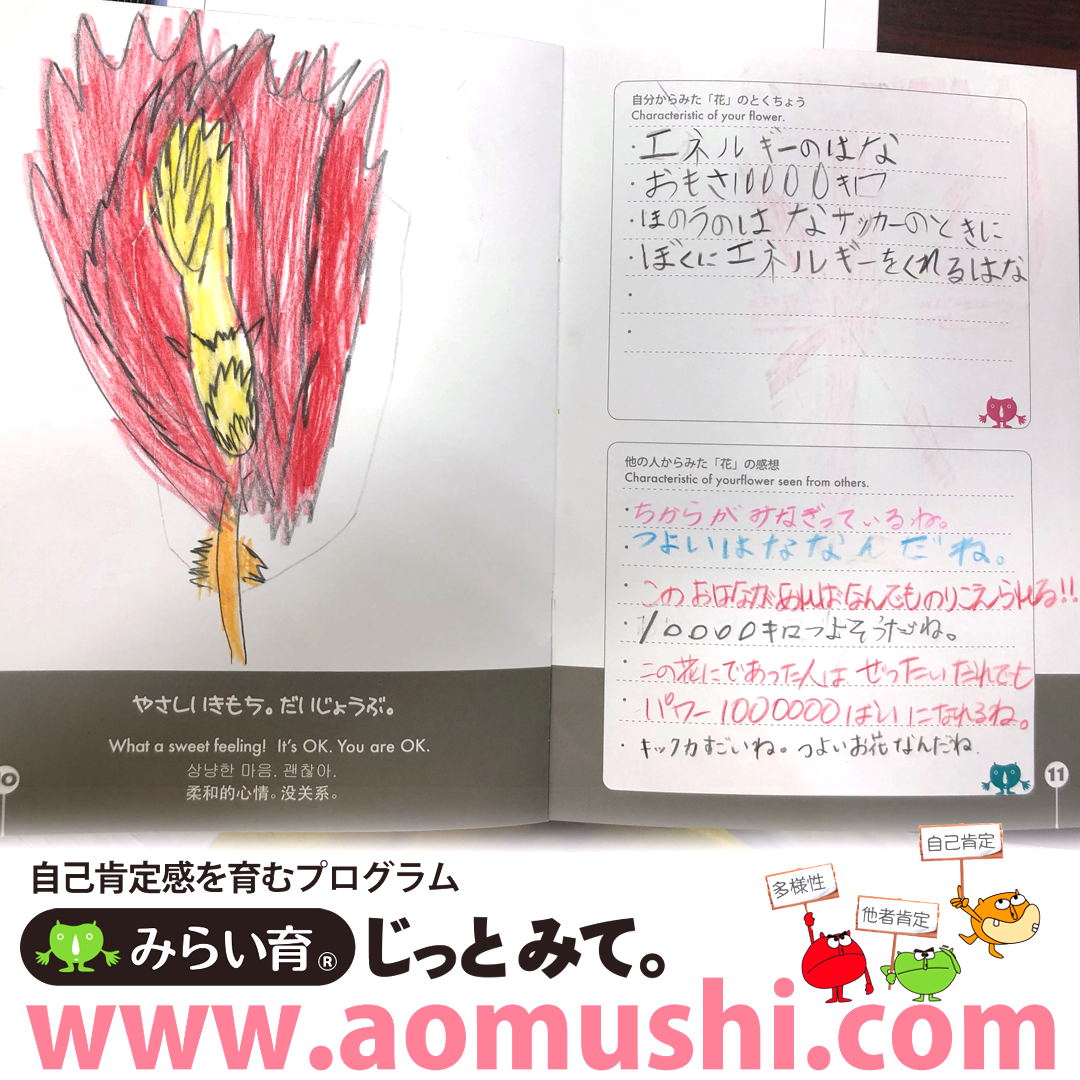 自分からみた「花」のとくちょう
Characteristic of your flower.
・エネルギーのはな
・おもさ10000キロ
・ほのうのは なサッカーのときに
・ぼくにエネルギーをくれるはな
他の人からみた「花」の感想
Characteristic of yourflower seen from others.
・ちからが みなぎっているね。
・つよいはななんだね。
・このおはながあればなんでものりこえられる!!
・10000キロつよそうだね。
・この花にであった人は ぜったいだれでも
・パワー1000000ばいになれるね。
・キック力すごいね。つよいお花なんだね.
やさしいきもち。だいじょうぶ。
What a sweet feeling! It's OK. You are OK.
상냥한 마음. 괜찮아.
柔和的心情。没关系。
10
11
自己肯定感を育むプログラム
みらい育® じっとみて。
多様性
他者肯定
自己肯定
www.aomushi.com